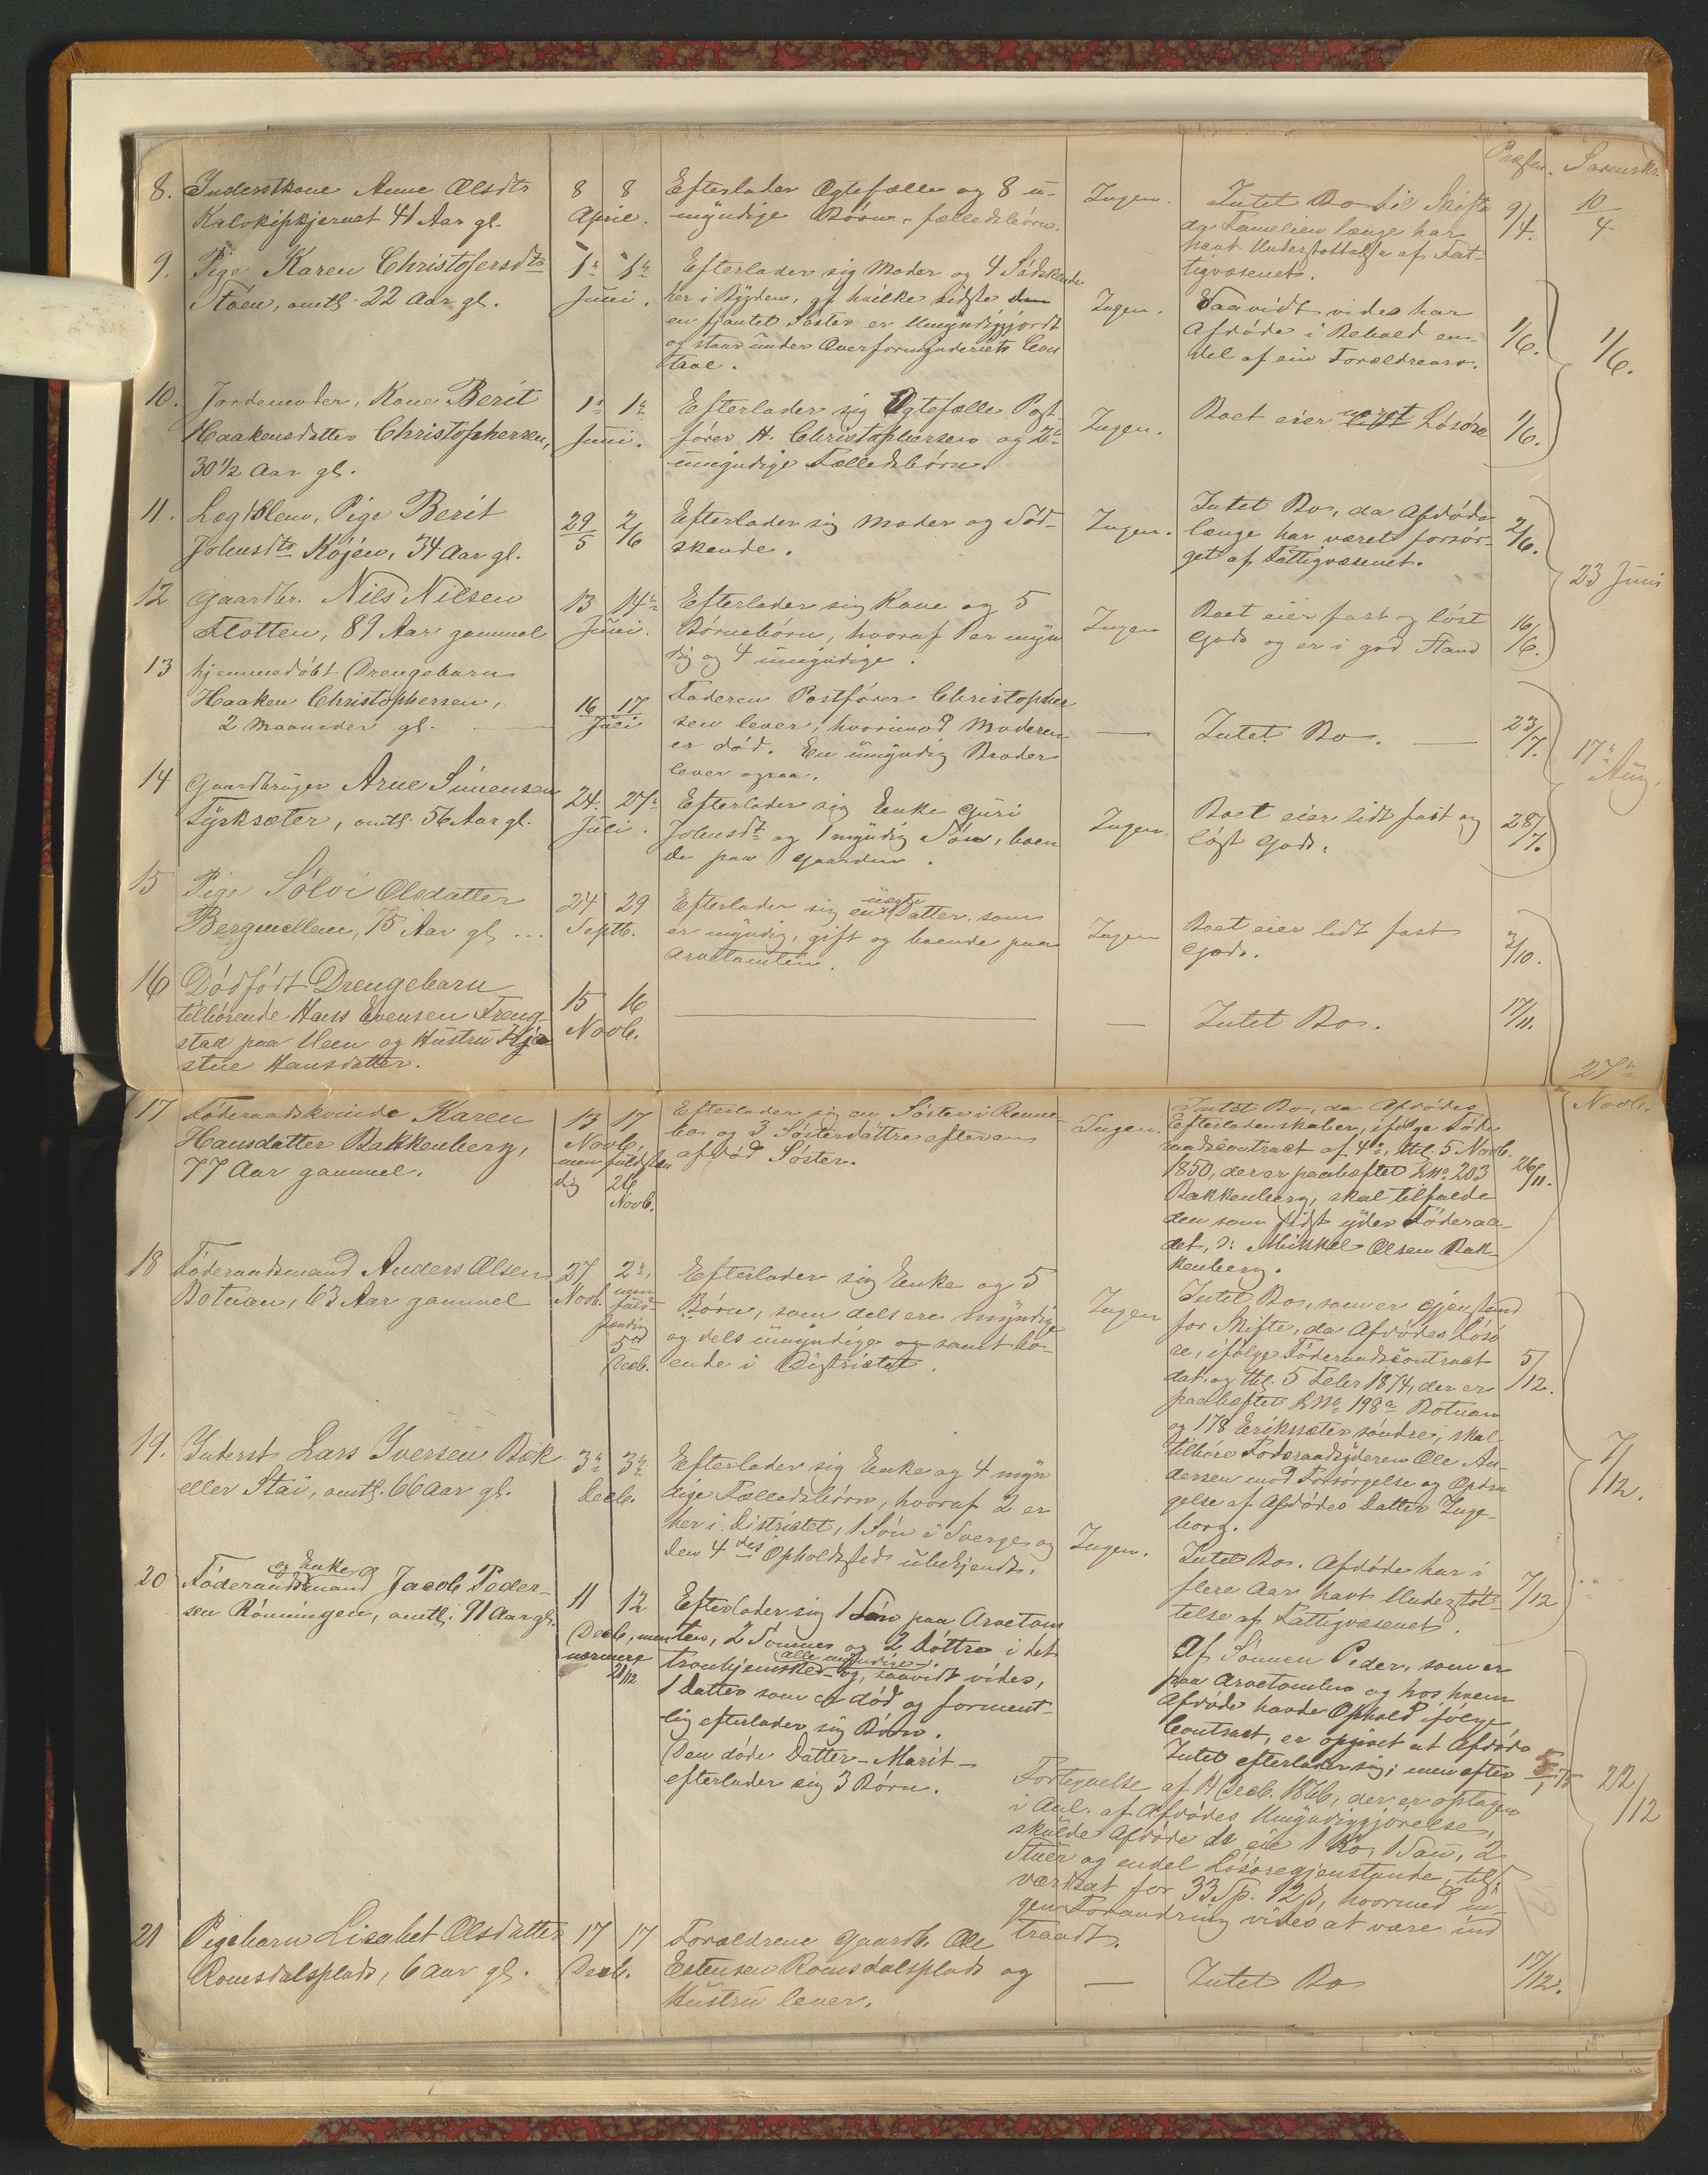 Præsten. Sorenskr.
8. Inderstkone Anne Olsdtr
Kalokipkjernet 41 Aar gl.
8 8
April.
Efterlader Ægtefælle og 8 u-
myndige Børn - fælledsbørn.
Ingen.
Intet Bo til Skifte
da Familien længe har
havt Understøttelse af Fat-
tigvæsenet.
9/4.
10/4
9. Pige Karen Christofersdtr
Støen, omtl. 22 Aar gl.
1ste 1ste
Juni.
Efterlader sig Moder og 4 Sødskende
her i Bygden, af hvilke sidste
en fjantet Søster er Umyndiggjordt
og staar under Overformynderiets Con
trol.
Ingen.
Saavidt vides har
Afdøde i Behold en-
del af sin Forældrearv.
1/6.
1/6.
10. Jordemoder, Kone Berit
Haakensdatter Christophersen,
30 1/2 Aar gl.
1ste 1ste
Juni.
Efterlader sig Ægtefælle Post-
fører H. Christophersen og 2de
umyndige Fælledsbørn.
Ingen.
Boet eier noget Løsøre
1/6.
11. Lægdslem, Pige Berit
Johnsdtr Køjen, 34 Aar gl.
29/5 2/6
Efterlader sig Moder og Sød-
skende.
Ingen.
Intet Bo, da Afdøde
længe har været forsør-
get af Fattigvæsenet.
2/6.
23 Juni
12 Gaardbr. Nils Nilsen
Flotten, 89 Aar gammel
13 14de
Juni.
Efterlader sig Kone og 5
Børnebørn, hvoraf 1 er myn
dig og 4 umyndige.
Ingen
Boet eier fast og løst
Gods og er i god Stand
16/6.
13 hjemmedøbt Drengebarn
Haaken Christophersen,
2 Maaneder gl.
16 17
Juli
Faderen Postfører Christopher
sen lever, hvorimod Moderen
er død. En umyndig Broder
lever ogsaa.
—
Intet Bo. —
23/7.
17de Aug.
14 Gaardbruger Arne Simensen
Tyrksæter, omtl. 56 Aar gl.
24. 27de
Juli.
Efterlader sig Enke Guri
Johnsdtr og 1 myndig Søn, boen
de paa Gaarden.
Ingen.
Boet eier lidt fast og
løst Gods.
28/7.
15 Pige Sølvi Olsdatter
Bergmellem, 75 Aar gl. ...
24 29
Septb.
Efterlader sig en uægte Datter, som
er myndig, gift og boende paa
Arvetomten.
Ingen
Boet eier lidt fast
Gods.
3/10.
16 Dødfødt Drengebarn
tilhørende Hans Evensen Treng-
stad paa Uen og Hustru Kjer
stie Hansdatter.
15 16
Novb.
—
—
Intet Bo.
17/11.
27de
Novb.
17 Føderaadskvinde Karen
Hansdatter Bakkenberg,
77 Aar gammel.
13 17
Novb,
men fuldstæn
dig 26
Novb.
Efterlader sig en Søster i Renne-
bo og 3 Søsterdøttre efter en
afdød Søster.
Ingen.
Intet Bo, da Afdødes
Efterladenskaber, ifølge Føde
raadscontract af 4de, thgl. 5 Novb.
1850, der er paaheftet LNo 203
Bakkenberg, skal tilfalde
den som sidst yder Føderaa-
det, ɔ: Mikkel Olsen Bak-
kenberg.
26/11.
18 Føderaadsmand Anders Olsen
Botnan, 63 Aar gammel
27 2de,
Novb. men
fuld-
stændig
5te
Decb.
Efterlader sig Enke og 5
Børn, som dels ere myndige
og dels umyndige og samt bo-
ende i Distriktet.
Ingen
Intet Bo, som er Gjenstand
for Skifte, da Afdødes Løsø
re, ifølge Føderaadscontract
dat. og thgl. 5 Febr 1874, der er
paaheftet LNo 198a Botnan
og 178 Erikssæter søndre, skal
tilhøre Føderaadsyderen Ole An-
dersen mod Forsørgelse og Opdra
gelse af Afdødes Datter Inge-
borg.
5/12.
19. Inderst Lars Iversen Bæk
eller Stai, omtl. 66 Aar gl.
3de 3de
Decb.
Efterlader sig Enke og 4 myn
dige Fælledsbørn, hvoraf 2 er
her i Distriktet, 1 Søn i Sverge og
den 4des Opholdssted ubekjendt.
Ingen.
Intet Bo. Afdøde har i
flere Aar havt Understøt-
telse af Fattigvæsenet.
7/12
7/12.
20 Føderaads og Enkemand Jacob Peder-
sen Rønningen, omtl. 91 Aar gl.
11 12
Decb, men
nærmere
21/12
Efterlader sig 1 Søn paa Arvetom
ten, 2 Sønner og 2 Døttre i det
Tronhjemske - alle myndige - og, saavidt vides,
1 Datter som er død og forment-
lig efterlader sig Børn.
Den døde Datter - Marit -
efterlader sig 3 Børn.
Af Sønnen Peder, som er
paa Arvetomten og hos hvem
Afdøde havde Ophold ifølge
Contract, er opgivet at Afdøde
Intet efterlader sig; men efter
Fortegnelse af 14 Decb. 1876, der er optagen
i Anl. af Afdødes Umyndiggjørelse,
skulde Afdøde da eie 1 Ko, 1 Sau, 2
Stuer og endel Løsøregjenstande, tils.
værdsat for 33 Sp. 12 s, hvormed in-
gen Forandring vides at være ind
traadt.
5/1 78
22/12
21 Pigebarn Lisabet Olsdatter
Romsdalsplads, 6 Aar gl.
17 17
Decb.
Forældrene Gaardb. Ole
Estensen Romsdalsplads og
Hustru lever.
—
Intet Bo
17/12.